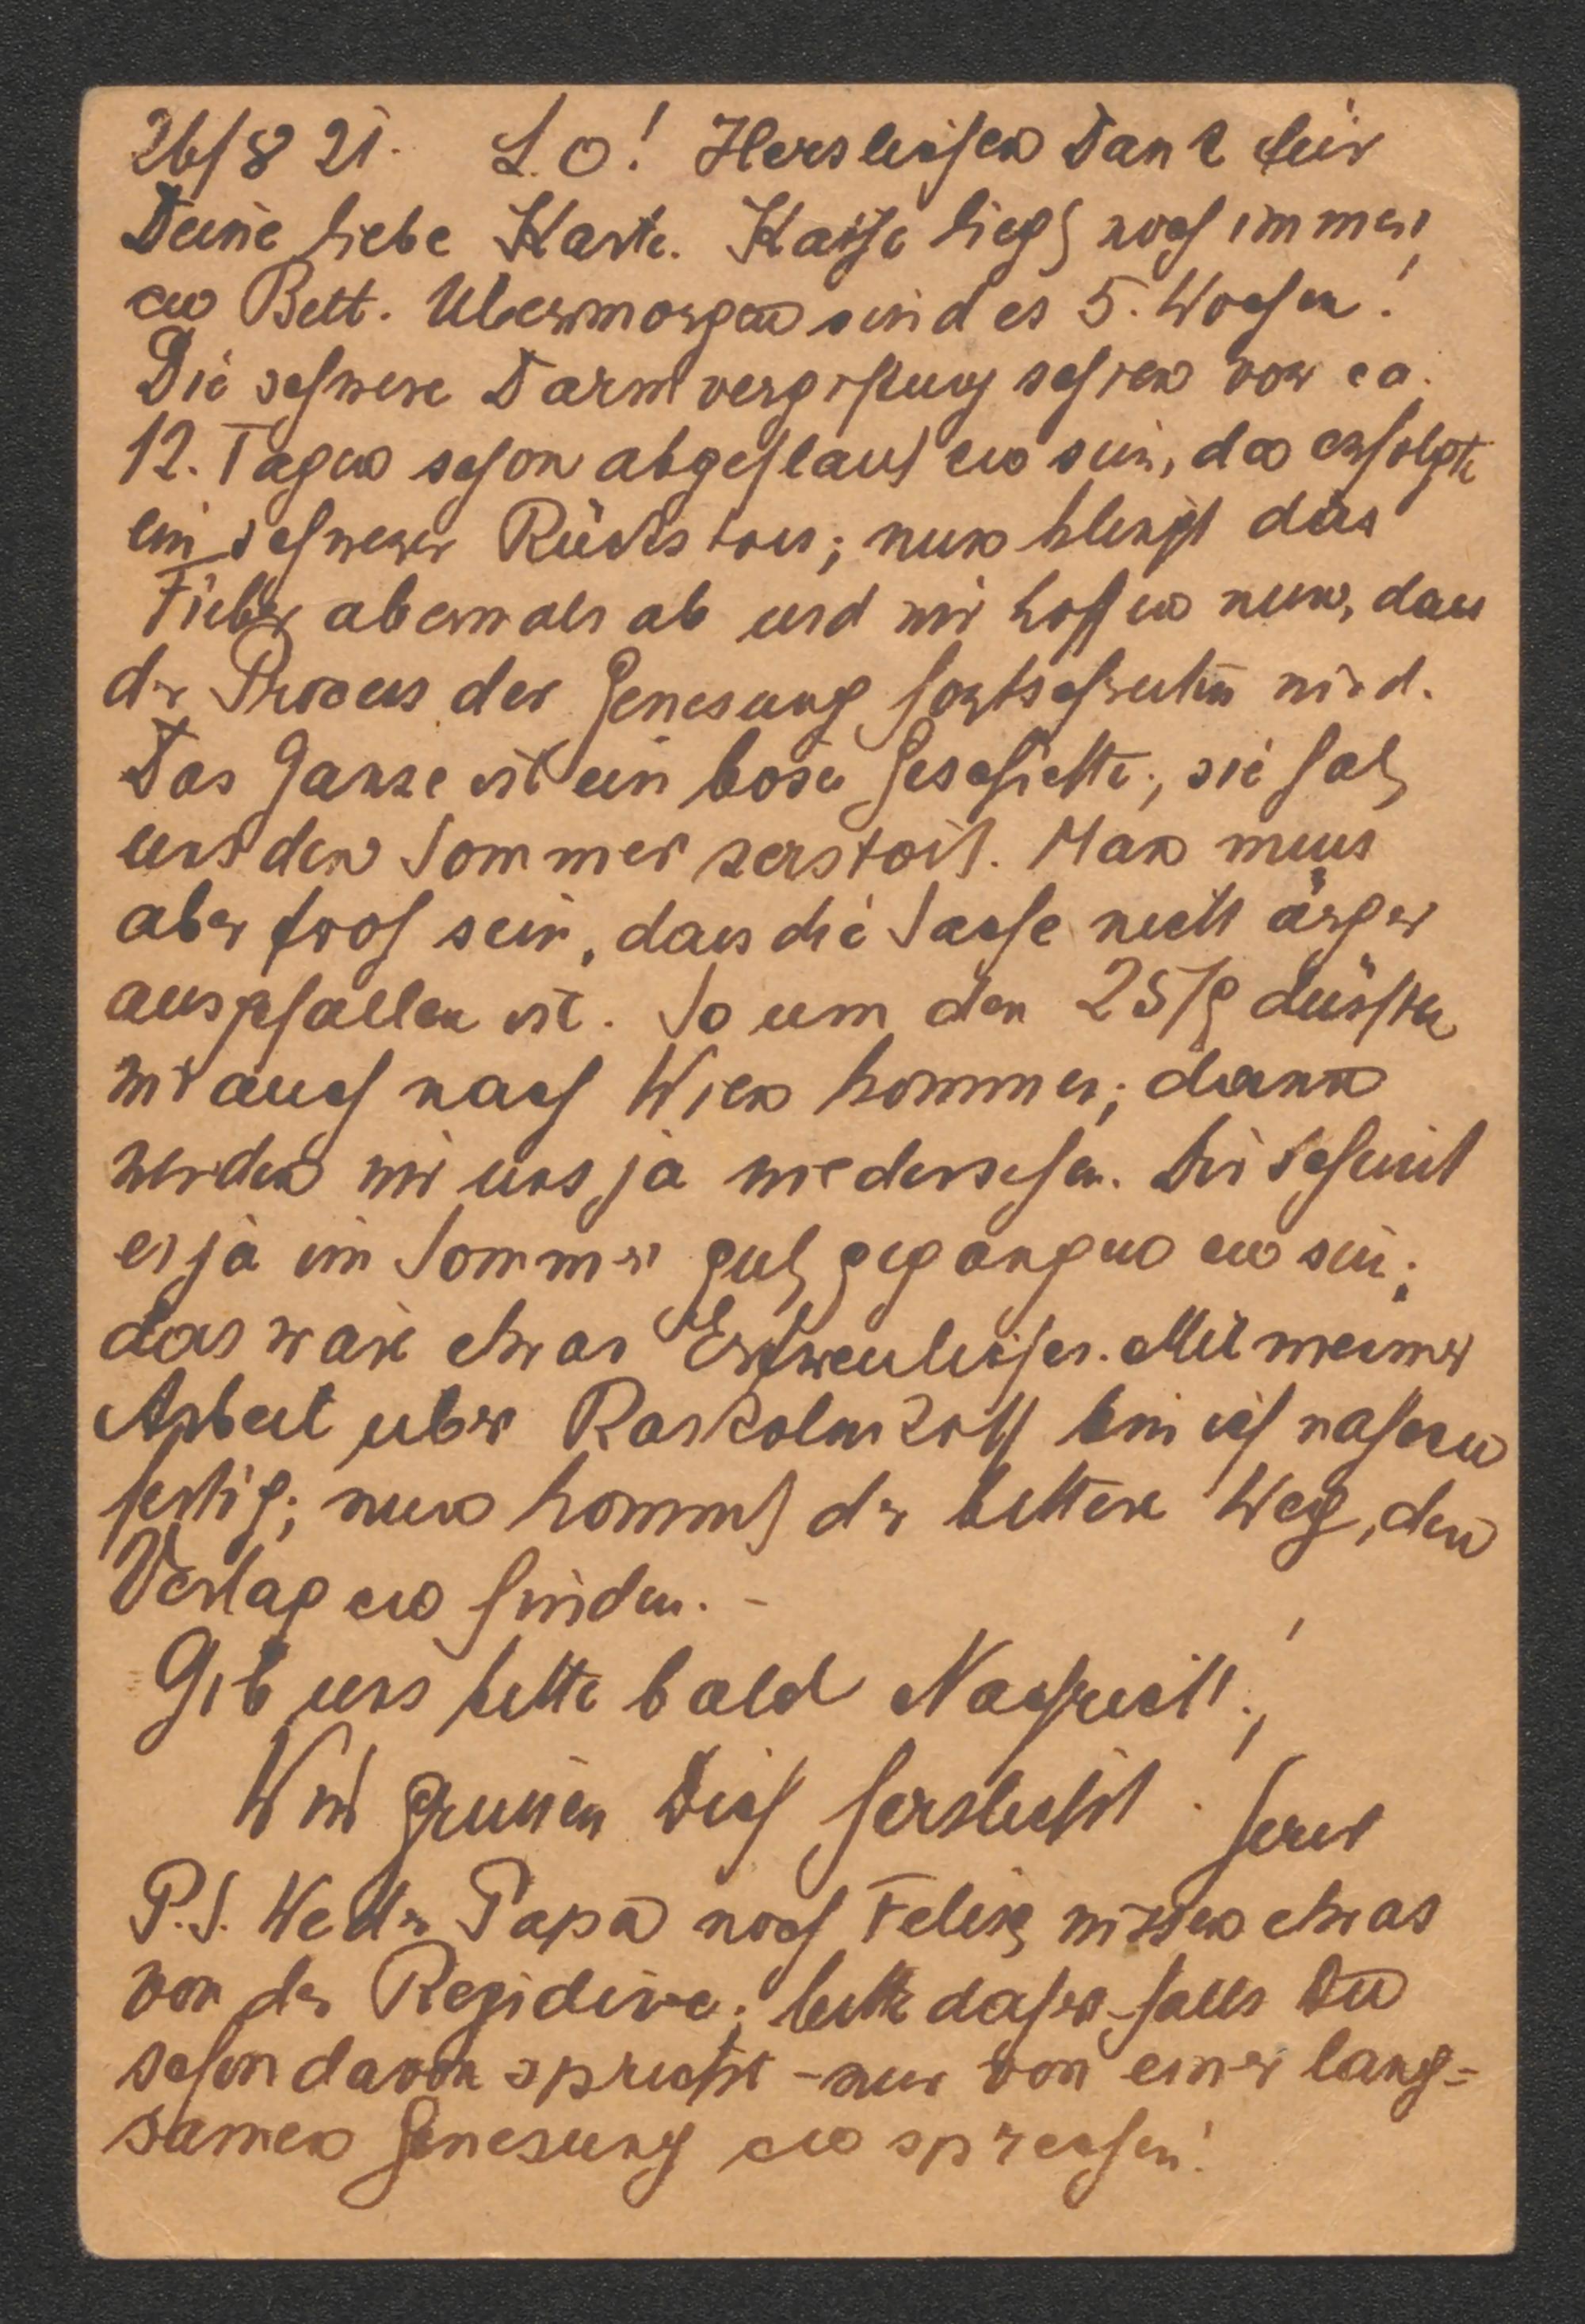 26/8 21. L.O! Herzlichen Dank für
Deine liebe Karte. Käthe liegt noch immer
zu Bett. Übermorgen sind es 5. Wochen!
Die schwere Darmvergiftung schien vor ca.
12. Tagen schon abgeflaut zu sein, da erfolgte
ein schwerer Rückstoss; nun klingt das
Fieber abermals ab und wir hoffen nun, dass
der Process der Genesung fortschreiten wird.
Das Ganze ist ein böse Geschichte; sie hat
uns den Sommer zerstört. Man muss
aber froh sein, dass die Sache nicht ärger
ausgefallen ist. So um den 25/9 dürften
wir auch nach Wien kommen; dann
werden wir uns ja wiedersehen. Dir scheint
es ja im Sommer gut gegangen zu sein;
das wäre etwas Erfreuliches. Mit meiner
Arbeit über Raskolnikoff bin ich nahezu
fertig; nun kommt der bittere Weg, den
Verlag zu finden. -
Gib uns bitte bald Nachricht!
Wir grüssen Dich herzlichst
P.S. Weder Papa noch Felix wissen etwas
von der Rezidive; bitte daher - falls Du
schon davon sprichst - nur von einer lang=
samen Genesung zu sprechen!